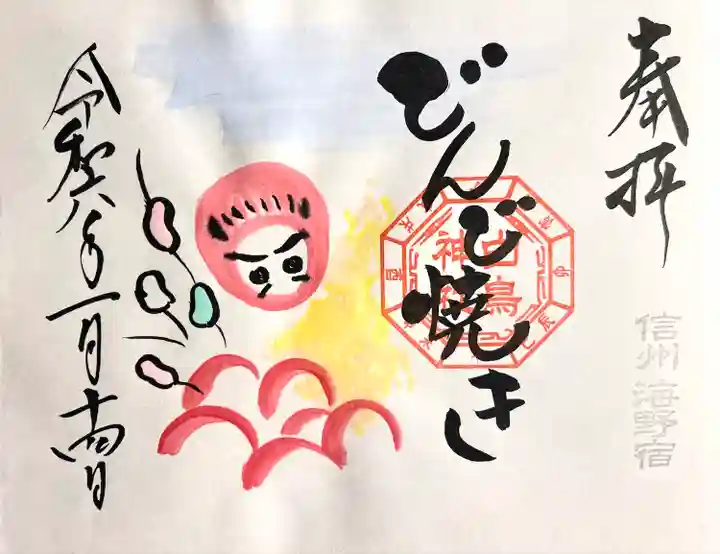 奉拝
信州 海野宿
どんど焼き
白鳥
神社
令和八年一月十四日